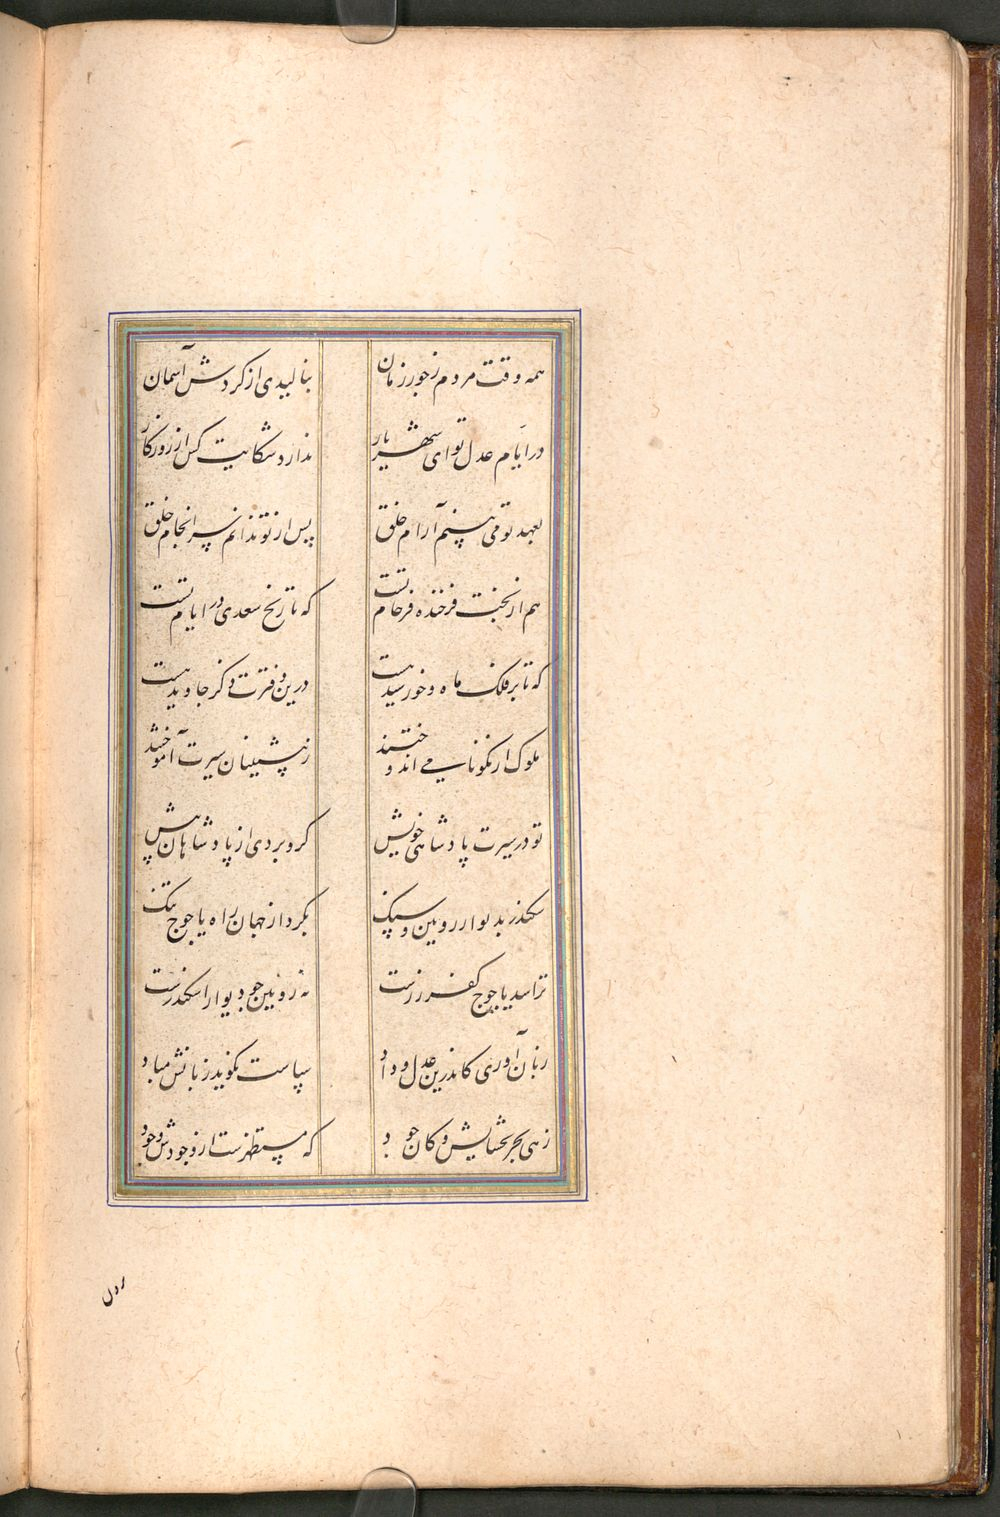 همه وقت مردم ز جور زمان بنالیدی از کردش آسمان
در ایّام عدل تو ای شهریار ندارد شکایت کس از روزکار
بعهد تو می بینم آرام خلق پس از تو ندانم سرانجام خلق
هم از بخت فرخنده فرجام تست که تاریخ سعدی در ایام تست
که تا بر فلک ماه و خورشید هست درین دفترت ذکر جاوید هست
ملوک ار نکونامی اندوختند ز پیشینان سیرت آموختند
تو در سیرت پادشاهی خویش کرو بردی از پادشاهان پیش
سکندر بدیوار رویین و سنک بکرد از جهان راه یاجوج تنک
ترا سد یاجوج کفر زرست نه رویین چو دیوار اسکندرست
زبان آوری کاندرین عدل و داد سپاست نکوید زبانش مباد
زهی بحر بخشایش و کان جود که مستظهرست از وجودش وجود